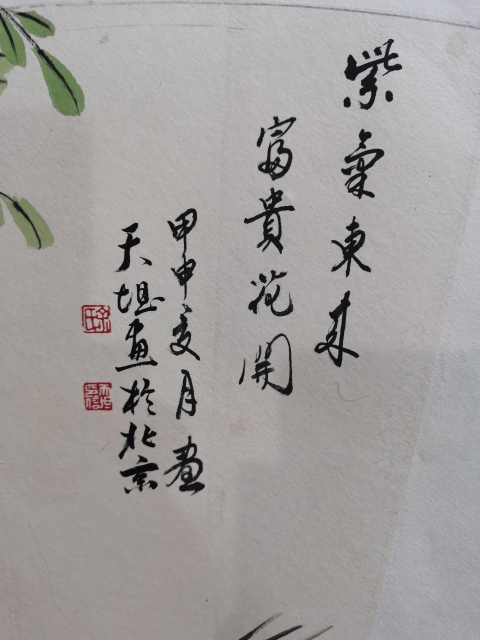 紫氣東来
富貴花開
甲申夏月畫
天坦畫於北京